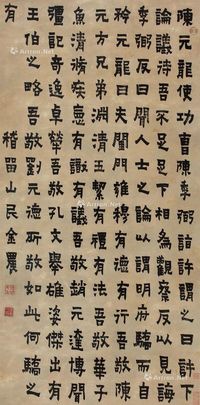 陳元龍使功曹陳季弼詣許謂之曰許下
論議待吾不足足下相為觀察反以見誨
季弼反曰聞人士之論以謂明府驕而自
矜元龍曰夫閨門雍穆有德有行吾敬陳
元方兄弟淵清玉絜有禮有法吾敬華子
魚清修疾惡有識有義吾敬趙元達博聞
彊記奇逸卓犖吾敬孔文舉雄姿傑出有
王伯之略吾敬劉元德所敬如此何驕之
有
稽留山民金農